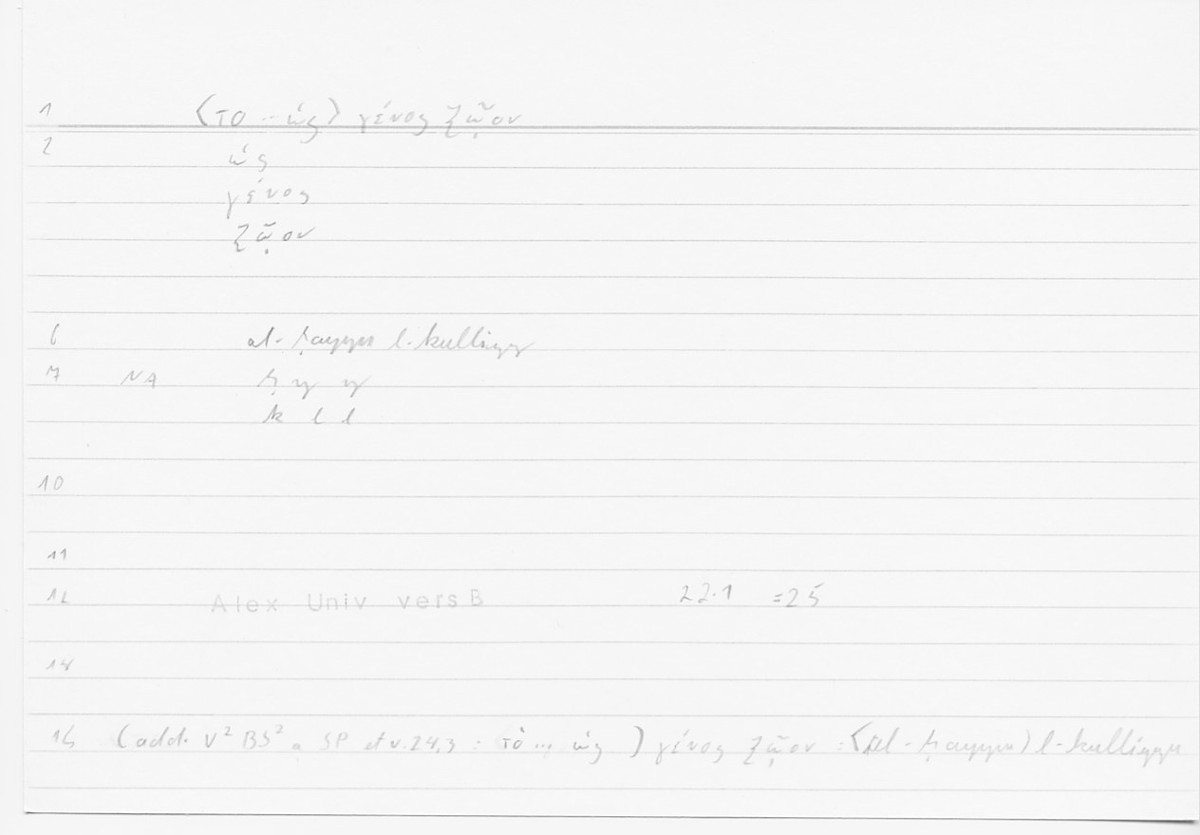 1 〈το ... ὡς〉 γένος ζῷον
2 ὡς
γένος
ζῷον
6 al-ḥayyu l-kulliyy
7 NA ḥ y y
k l l
10
11
12 Alex Univ vers B 22.1 =25
14
15 (add. V² BS² a SP et v. 24,3 : τὸ ... ὡς ) γένος ζῷον : 〈al-ḥayyu〉 l-kulliyyu